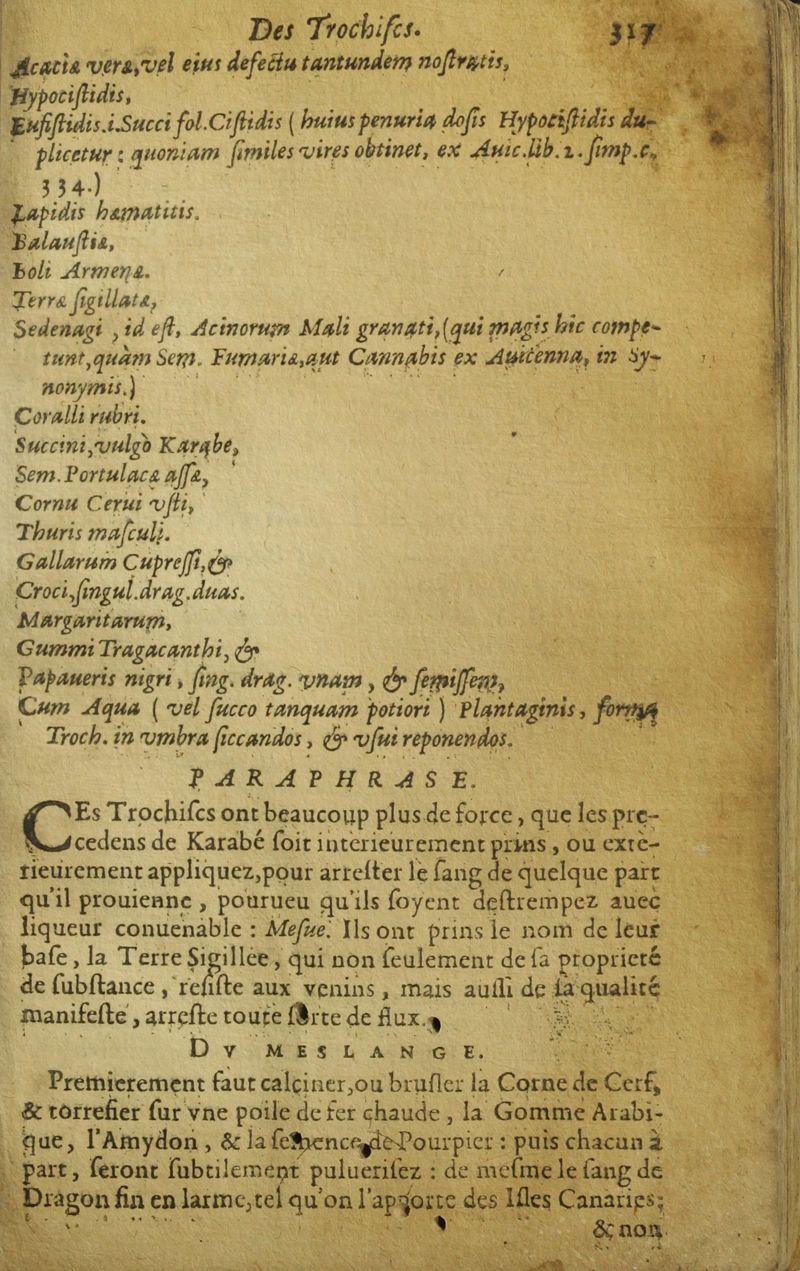 Des Trochiſcs. 317
Acaciæ veræ, vel eius defectu tantundem noſtratis,
Hypociſtidis,
Eufiſtidis.i.Succi fol.Ciſtidis ( huius penuria doſis Hypociſtidis du-
plicetur : quoniam ſimiles vires obtinet, ex Auic.lib.2.ſimp.c.
334.)
Lapidis hæmatitis.
Balauſtiæ,
Boli Armenæ.
Terræ ſigillatæ,
Sedenagi , id eſt, Acinorum Mali granati,(qui magis hic compe-
tunt,quàm Sem. Fumariæ,aut Cannabis ex Auicenna, in Sy-
nonymis.)
Coralli rubri.
Succini,vulgò Karabe,
Sem.Portulacæ aſſæ,
Cornu Cerui vſti,
Thuris maſculi.
Gallarum Cupreſſi,&
Croci,ſingul.drag.duas.
Margaritarum,
Gummi Tragacanthi, &
Papaueris nigri, ſing. drag. vnam , & ſemiſſem,
Cum Aqua ( vel ſucco tanquam potiori ) Plantaginis, forma
Troch. in vmbra ſiccandos , & vſui reponendos.
PARAPHRASE.
CEs Trochiſcs ont beaucoup plus de force, que les pre-
cedens de Karabé ſoit interieurement prins , ou exte-
rieurement appliquez,pour arreſter le ſang de quelque part
qu'il prouienne , pourueu qu'ils ſoyent deſtrempez auec
liqueur conuenable : Meſue. Ils ont prins le nom de leur
baſe, la Terre Sigillée, qui non ſeulement de ſa proprieté
de ſubſtance , reſiſte aux venins , mais auſſi de ſa qualité
manifeſte, arreſte toute ſorte de flux.
DV MESLANGE.
Premierement faut calciner,ou bruſler la Corne de Cerf,
& torrefier ſur vne poile de fer chaude , la Gomme Arabi-
que, l'Amydon , & la ſemence de Pourpier : puis chacun à
part, ſeront ſubtilement puluerisez : de meſme le ſang de
Dragon fin en larme,tel qu'on l'apporte des Iſles Canaries;
& non